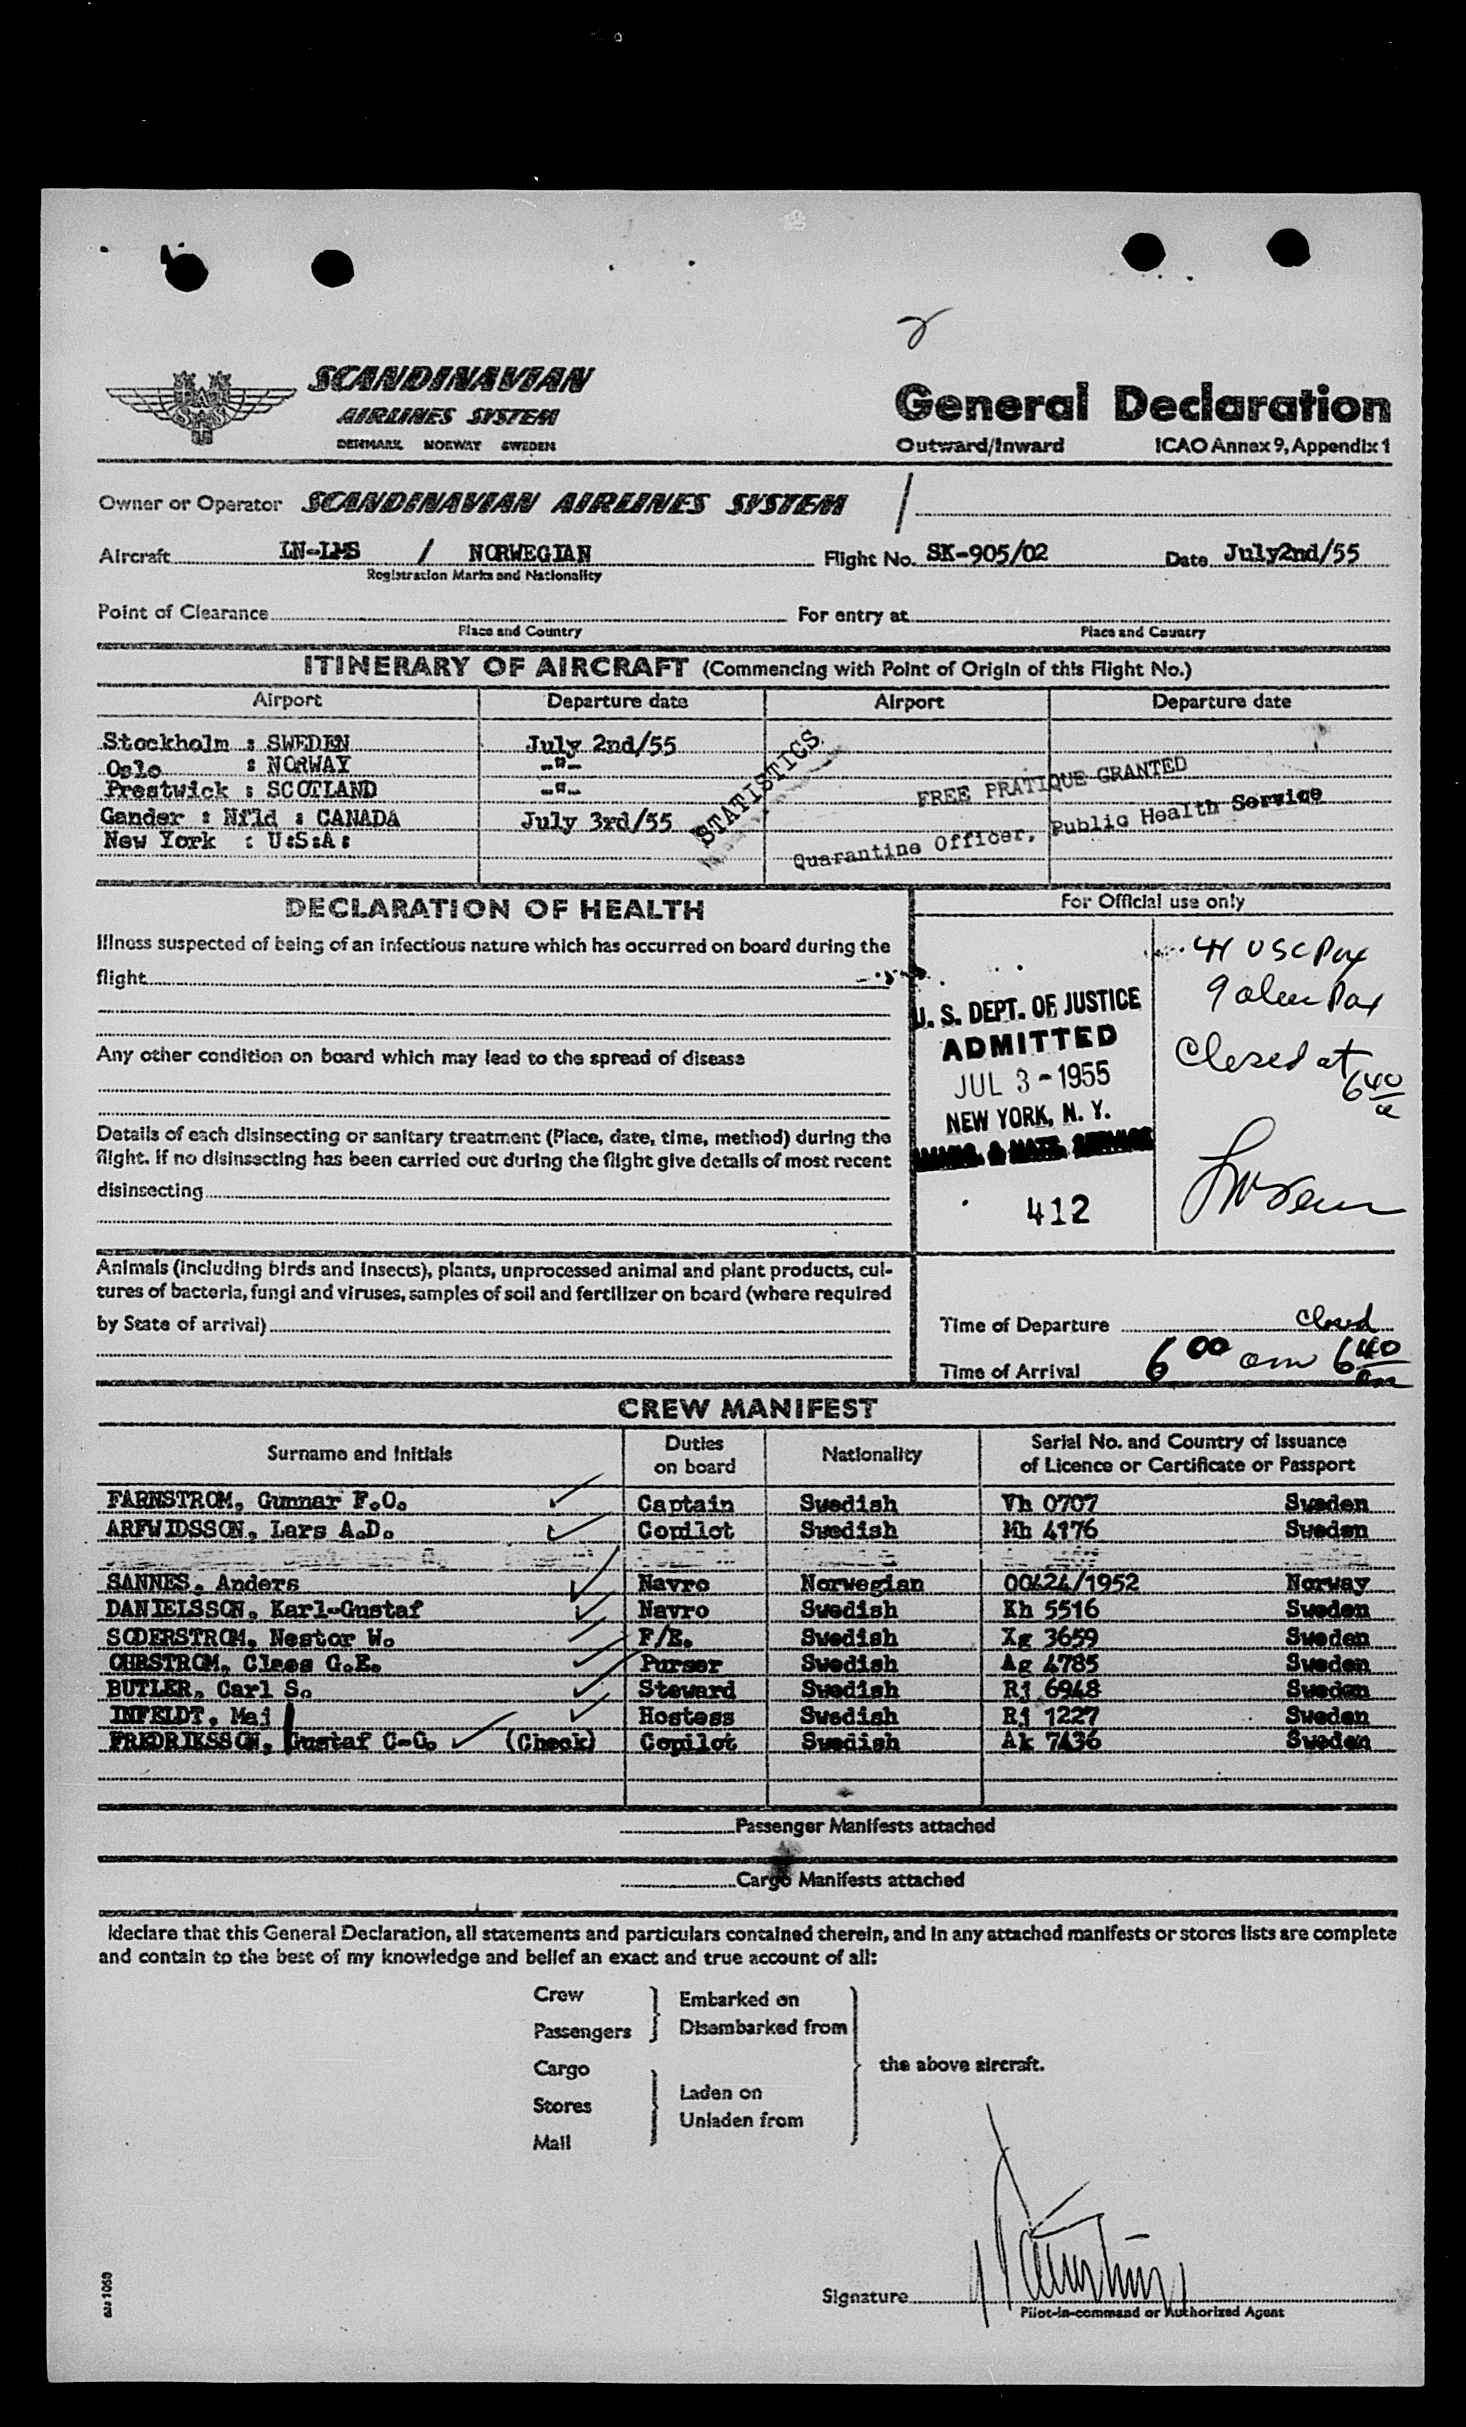 SCANDINAVIAN
AIRLINES SYSTEM
DENMARK NORWAY SWEDEN
General Declaration
Outward/Inward ICAO Annex 9, Appendix 1
Owner or Operator SCANDINAVIAN AIRLINES SYSTEM /
Aircraft / NORWEGIAN Flight No. SK-905/02 Date July2nd/55
Registration Marks and Nationality
Point of Clearance For entry at
Place and Country Place and Country
ITINERARY OF AIRCRAFT (Commencing with Point of Origin of this Flight No.)
Airport Departure date Airport Departure date
Stockholm : SWEDEN July 2nd/55
Oslo : NORWAY -"-
Prestwick : SCOTLAND -"-
Gander : Nfld : CANADA July 3rd/55
New York : U:S:A:
STATISTICS
FREE PRATIQUE GRANTED
Quarantine Officer, Public Health Service
DECLARATION OF HEALTH
For Official use only
Illness suspected of being of an infectious nature which has occurred on board during the
flight
Any other condition on board which may lead to the spread of disease
Details of each disinsecting or sanitary treatment (Place, date, time, method) during the
flight. If no disinsecting has been carried out during the flight give details of most recent
disinsecting
U. S. DEPT. OF JUSTICE
ADMITTED
JUL 3 - 1955
NEW YORK, N. Y.
IMMIG. & NATZ. SERVICE
412
41 USC Pax
9 alien Pax
Closed at
6 40
a
Animals (including birds and insects), plants, unprocessed animal and plant products, cul-
tures of bacteria, fungi and viruses, samples of soil and fertilizer on board (where required
by State of arrival)
Time of Departure Closed
Time of Arrival 6 00 am 6 40 am
CREW MANIFEST
Surname and Initials Duties on board Nationality Serial No. and Country of Issuance of Licence or Certificate or Passport
FARNSTROM, Gunnar F.O. Captain Swedish Vh 0707 Sweden
ARFWIDSSON, Lars A.D. Copilot Swedish Mh 4176 Sweden
SANNES, Anders Navro Norwegian 00424/1952 Norway
DANIELSSON, Karl-Gustaf Navro Swedish Kh 5516 Sweden
SODERSTROM, Nestor W. F/E. Swedish Xg 3659 Sweden
OHRSTROM, Claes G.E. Purser Swedish Ag 4785 Sweden
BUTLER, Carl S. Steward Swedish Rj 6948 Sweden
INFELDT, Maj Hostess Swedish Rj 1227 Sweden
FREDRIKSSON, Gustaf C-G. (Check) Copilot Swedish Ak 7436 Sweden
Passenger Manifests attached
Cargo Manifests attached
I declare that this General Declaration, all statements and particulars contained therein, and in any attached manifests or stores lists are complete
and contain to the best of my knowledge and belief an exact and true account of all:
Crew
Passengers
Embarked on
Disembarked from
Cargo
Stores
Mail
Laden on
Unladen from
the above aircraft.
Signature
Pilot-in-command or Authorized Agent